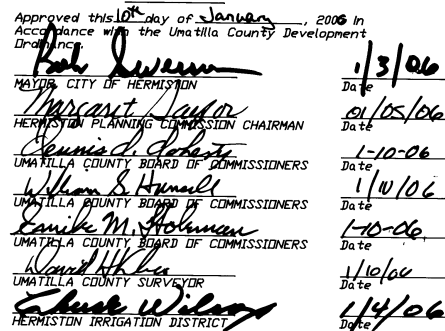 Approved this 10th day of January, 2006 in
Accordance with the Umatilla County Development
Ordinance.
1/3/06
MAYOR, CITY OF HERMISTON Date
Margaret Saylor 01/05/06
HERMISTON PLANNING COMMISSION CHAIRMAN Date
Dennis D. Doherty 1-10-06
UMATILLA COUNTY BOARD OF COMMISSIONERS Date
William S. Hansell 1/10/06
UMATILLA COUNTY BOARD OF COMMISSIONERS Date
M. 1-10-06
UMATILLA COUNTY BOARD OF COMMISSIONERS Date
David H 1/10/06
UMATILLA COUNTY SURVEYOR Date
Chuck Wilson 1/4/06
HERMISTON IRRIGATION DISTRICT Date